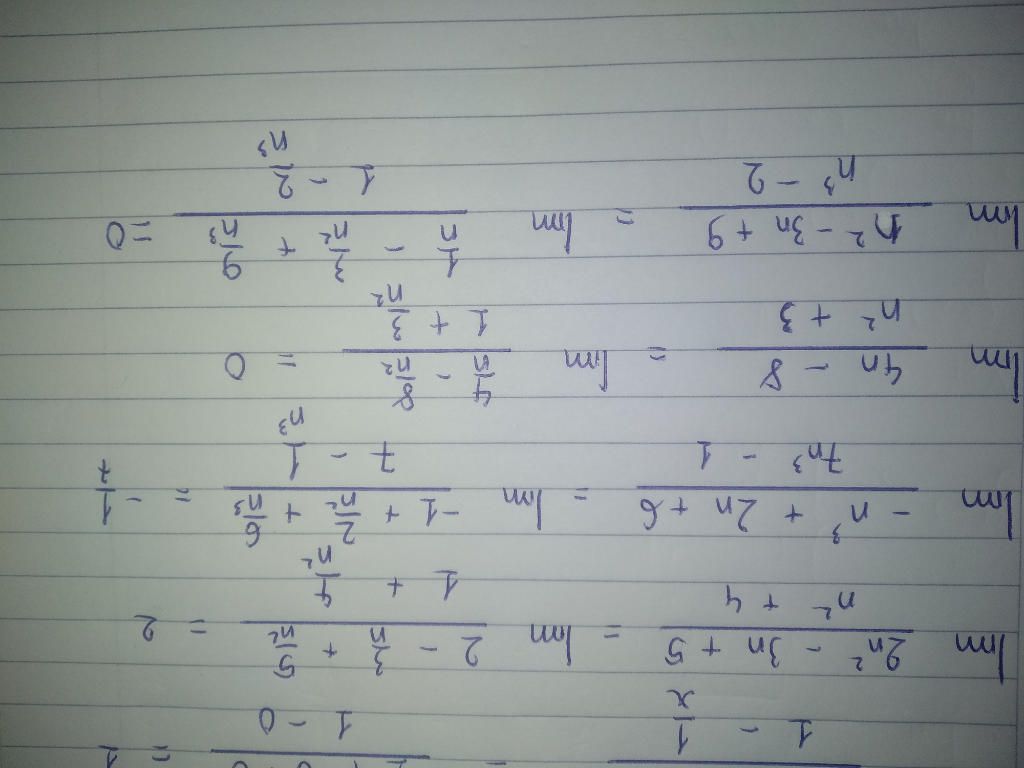 1 - 1/x = 1 - 0 = 1
lim (2n² - 3n + 5)/(n² + 4) = lim (2 - 3/n + 5/n²)/(1 + 4/n²) = 2
lim (-n³ + 2n + 6)/(7n³ - 1) = lim (-1 + 2/n² + 6/n³)/(7 - 1/n³) = -1/7
lim (4n - 8)/(n² + 3) = lim (4/n - 8/n²)/(1 + 3/n²) = 0
lim (n² - 3n + 9)/(n³ - 2) = lim (1/n - 3/n² + 9/n³)/(1 - 2/n³) = 0